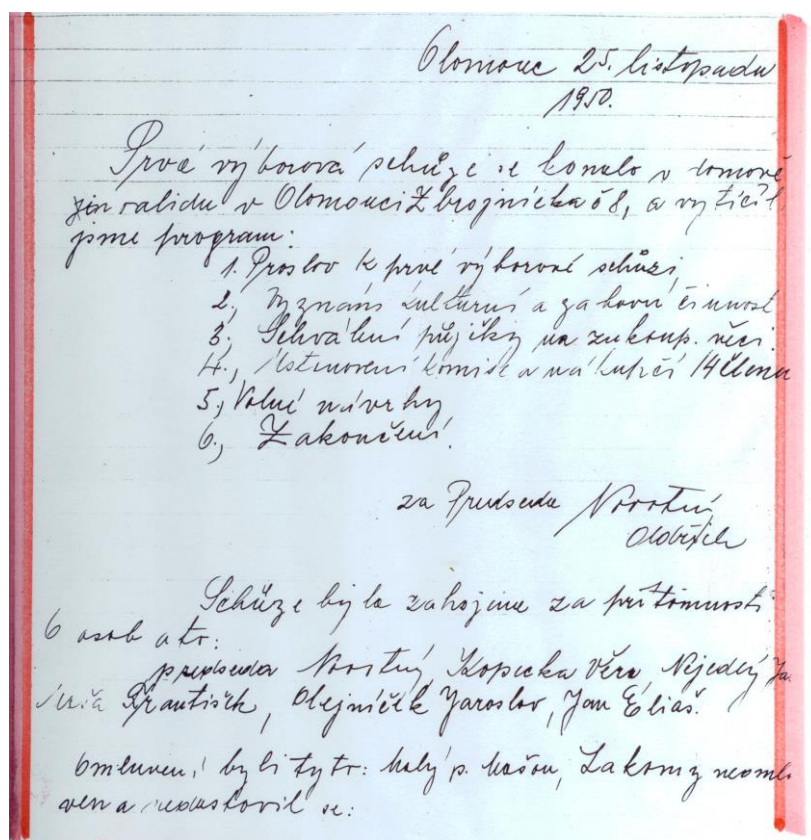 Olomouc 25. listopadu
1950.
Prvá výborová schůze se konala v domově
invalidu v Olomouci Zbrojnická č 8, a vytícil
jsme program:
1. Proslov k prvé výborové schůzi,
2., Význáms kulturní a zabovú činnost
3., Schválení půjčky na zakoup. věcí.
4., Ustanovení komise a nákupčí 14 členu
5., Volné návrhy
6., Zakončení.
za Predsedu Novotný
Oldřich
Schůze byla zahájena za přítomnosti
6 osob a to:
predseda Novotný, Kopecka Věra, Nejedlý
František, Olejníček Jaroslov, Jan Éliaš.
Omluveni byli tyto: Malý p. Mašou, Lakomy neoml
ven a nedostovil se: